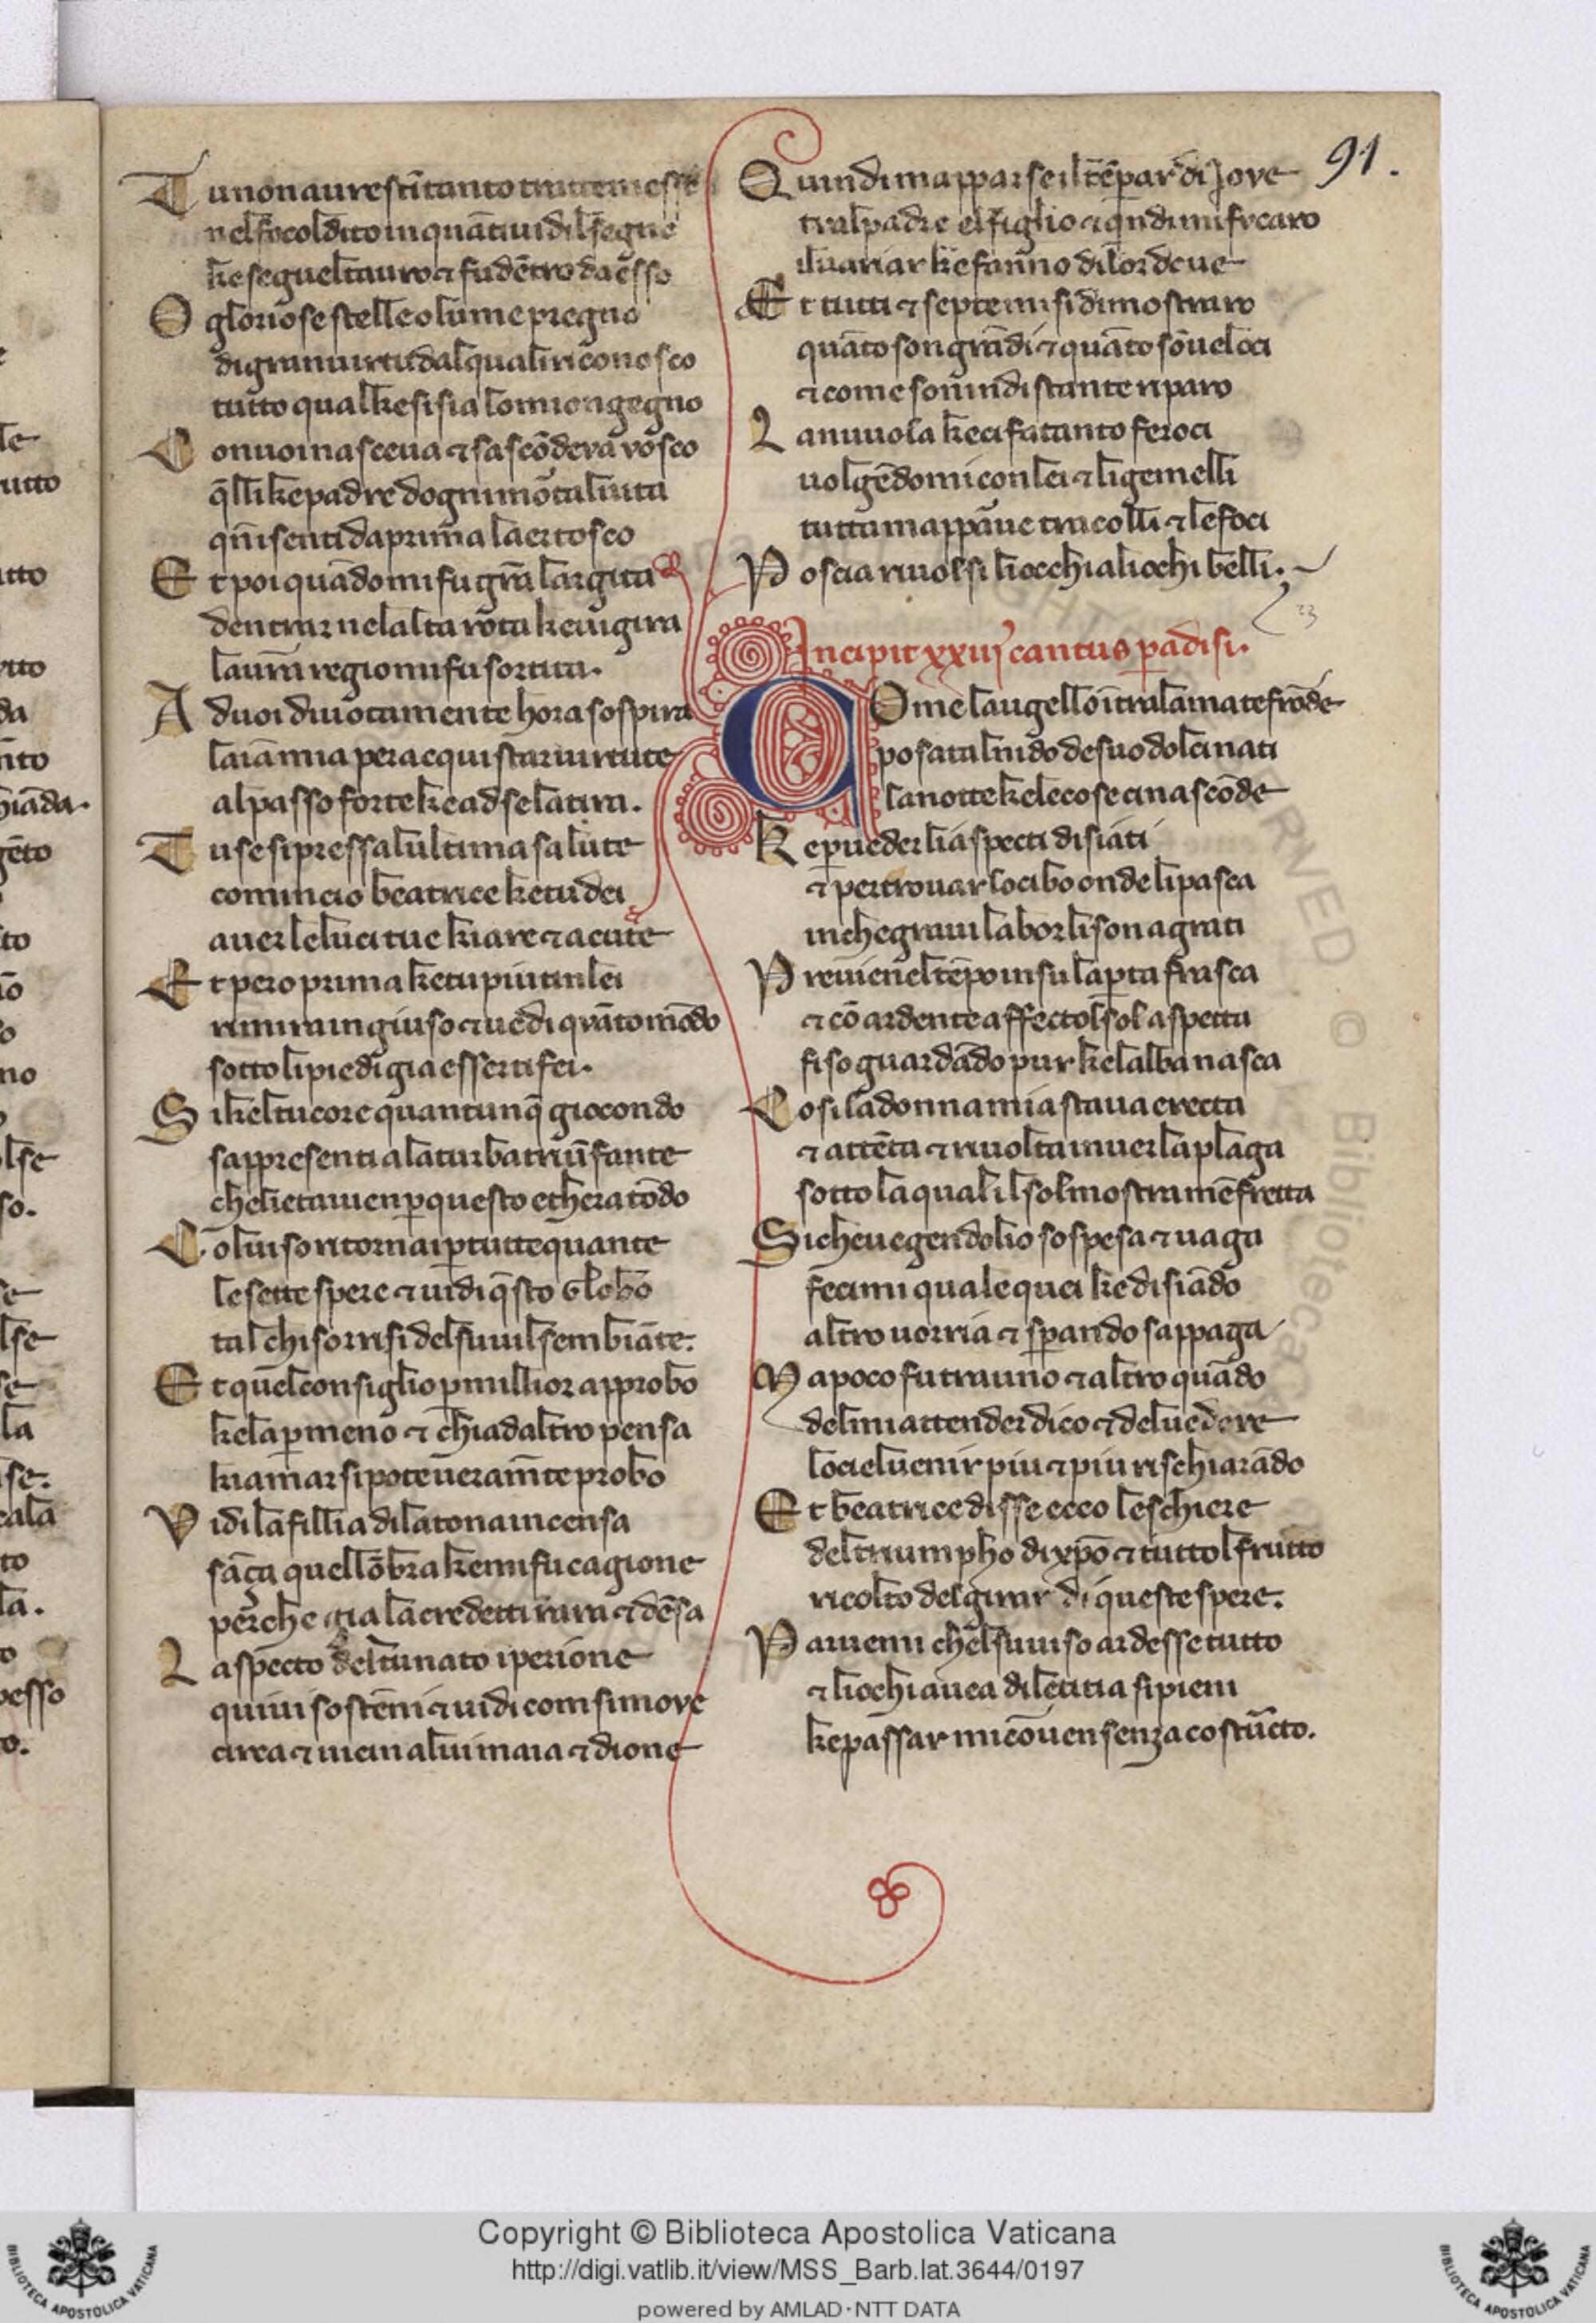 91.
Tu non auresti tanto tratto e messo
nel foco ldito in quāto vidil segno
ke seguel tauro ⁊ fu dētro da esso
O gloriose stelle o lume pregno
di gran virtu dal qual iriconosco
tutto qual ke si sia lo mio ngegno
Con voi nasceva ⁊ sascōdeva vosco
q̄lli ke padre dogni mōtal vita
qn̄ i senti da prima laer tosco
Et poi quādo mi fu grā largita
dentrar nelalta rōta ke vi gira
la vrā region mi fu sortita.
A duoi divotamente hora sospira
laīa mia per acquistar virtute
al passo forte ke ad se la tira.
Tu se si presso alultima salute
comincio beatrice ke tu dei
aver le luci tue kiare ⁊ acute
Et pero prima ke tu piu tinlei
rimira in giuso ⁊ vedi qvāto mōdo
sotto li piedi gia esser ti fei.
Si kel tu core quantunq̄ giocondo
sappresenti ala turba triūfante
che lieta vien p questo ethera tōdo
Col viso ritornai p tutte quante
le sette spere ⁊ vidi q̄sto globo
tal chi sorrisi del suo vil sembiāte.
Et quel consiglio p millior approbo
ke la p meno ⁊ chi ad altro pensa
kiamar si pote verām̄te probo
Vidi la fillia di latona incensa
sāça quellōbra ke mi fu cagione
perche gia la credetti rara ⁊ dēsa
Laspecto del tu nato iperione
quivi sostēni ⁊ vidi com si move
circa ⁊ vicin a lui maia ⁊ dione
Quindi mapparse il tēpar di Jove
tral padre el figlio ⁊ q̄ndi mi fv caro
il variar ke fanno di lor dove
Et tutti ⁊ septe mi si dimostraro
quāto son grādi ⁊ quāto sō veloci
⁊ come sonin distante riparo
Lanvuola ke ci fa tanto feroci
volgēdomi con lei ⁊ li gemelli
tutta mappāve tra colli ⁊ le foci
Poscia rivolsi li occhi ali ochi belli.
23
Incipit xxiij cantus padisi.
COme laugello ītra lamate frōde
posata l nido de suo dolci nati
la notte ke le cose ci nascōde
Ke p veder li aspecti disiati
⁊ per trovar lo cibo onde li pasca
in che gravi labor li son agrati
Previenel tēpo in su lapta frasca
⁊ cō ardente affectol sol aspetta
fiso guardādo pur ke lalba nasca
Cosi la donna mia stava erecta
⁊ attēta ⁊ rivolta inver la plaga
sotto la qual il sol mostra mē fretta
Si che vegendolio sospesa ⁊ vaga
fecimi quale quei ke disiādo
altro vorria ⁊ sperando sappaga
Ma poco fu tra uno ⁊ altro quādo
del mi attender dico ⁊ del vedere
lo ciel venir piu ⁊ piu rischiarādo
Et beatrice disse ecco le schiere
del triumpho di xp̄o ⁊ tuttol frutto
ricolto del girar di queste spere.
Pariemi chel suo viso ardesse tutto
⁊ li ochi avea di letitia si pieni
ke passar mi cōven senza costructo.
Copyright © Biblioteca Apostolica Vaticana
http://digi.vatlib.it/view/MSS_Barb.lat.3644/0197
powered by AMLAD·NTT DATA
BIBLIOTECA APOSTOLICA VATICANA
BIBLIOTECA APOSTOLICA VATICANA